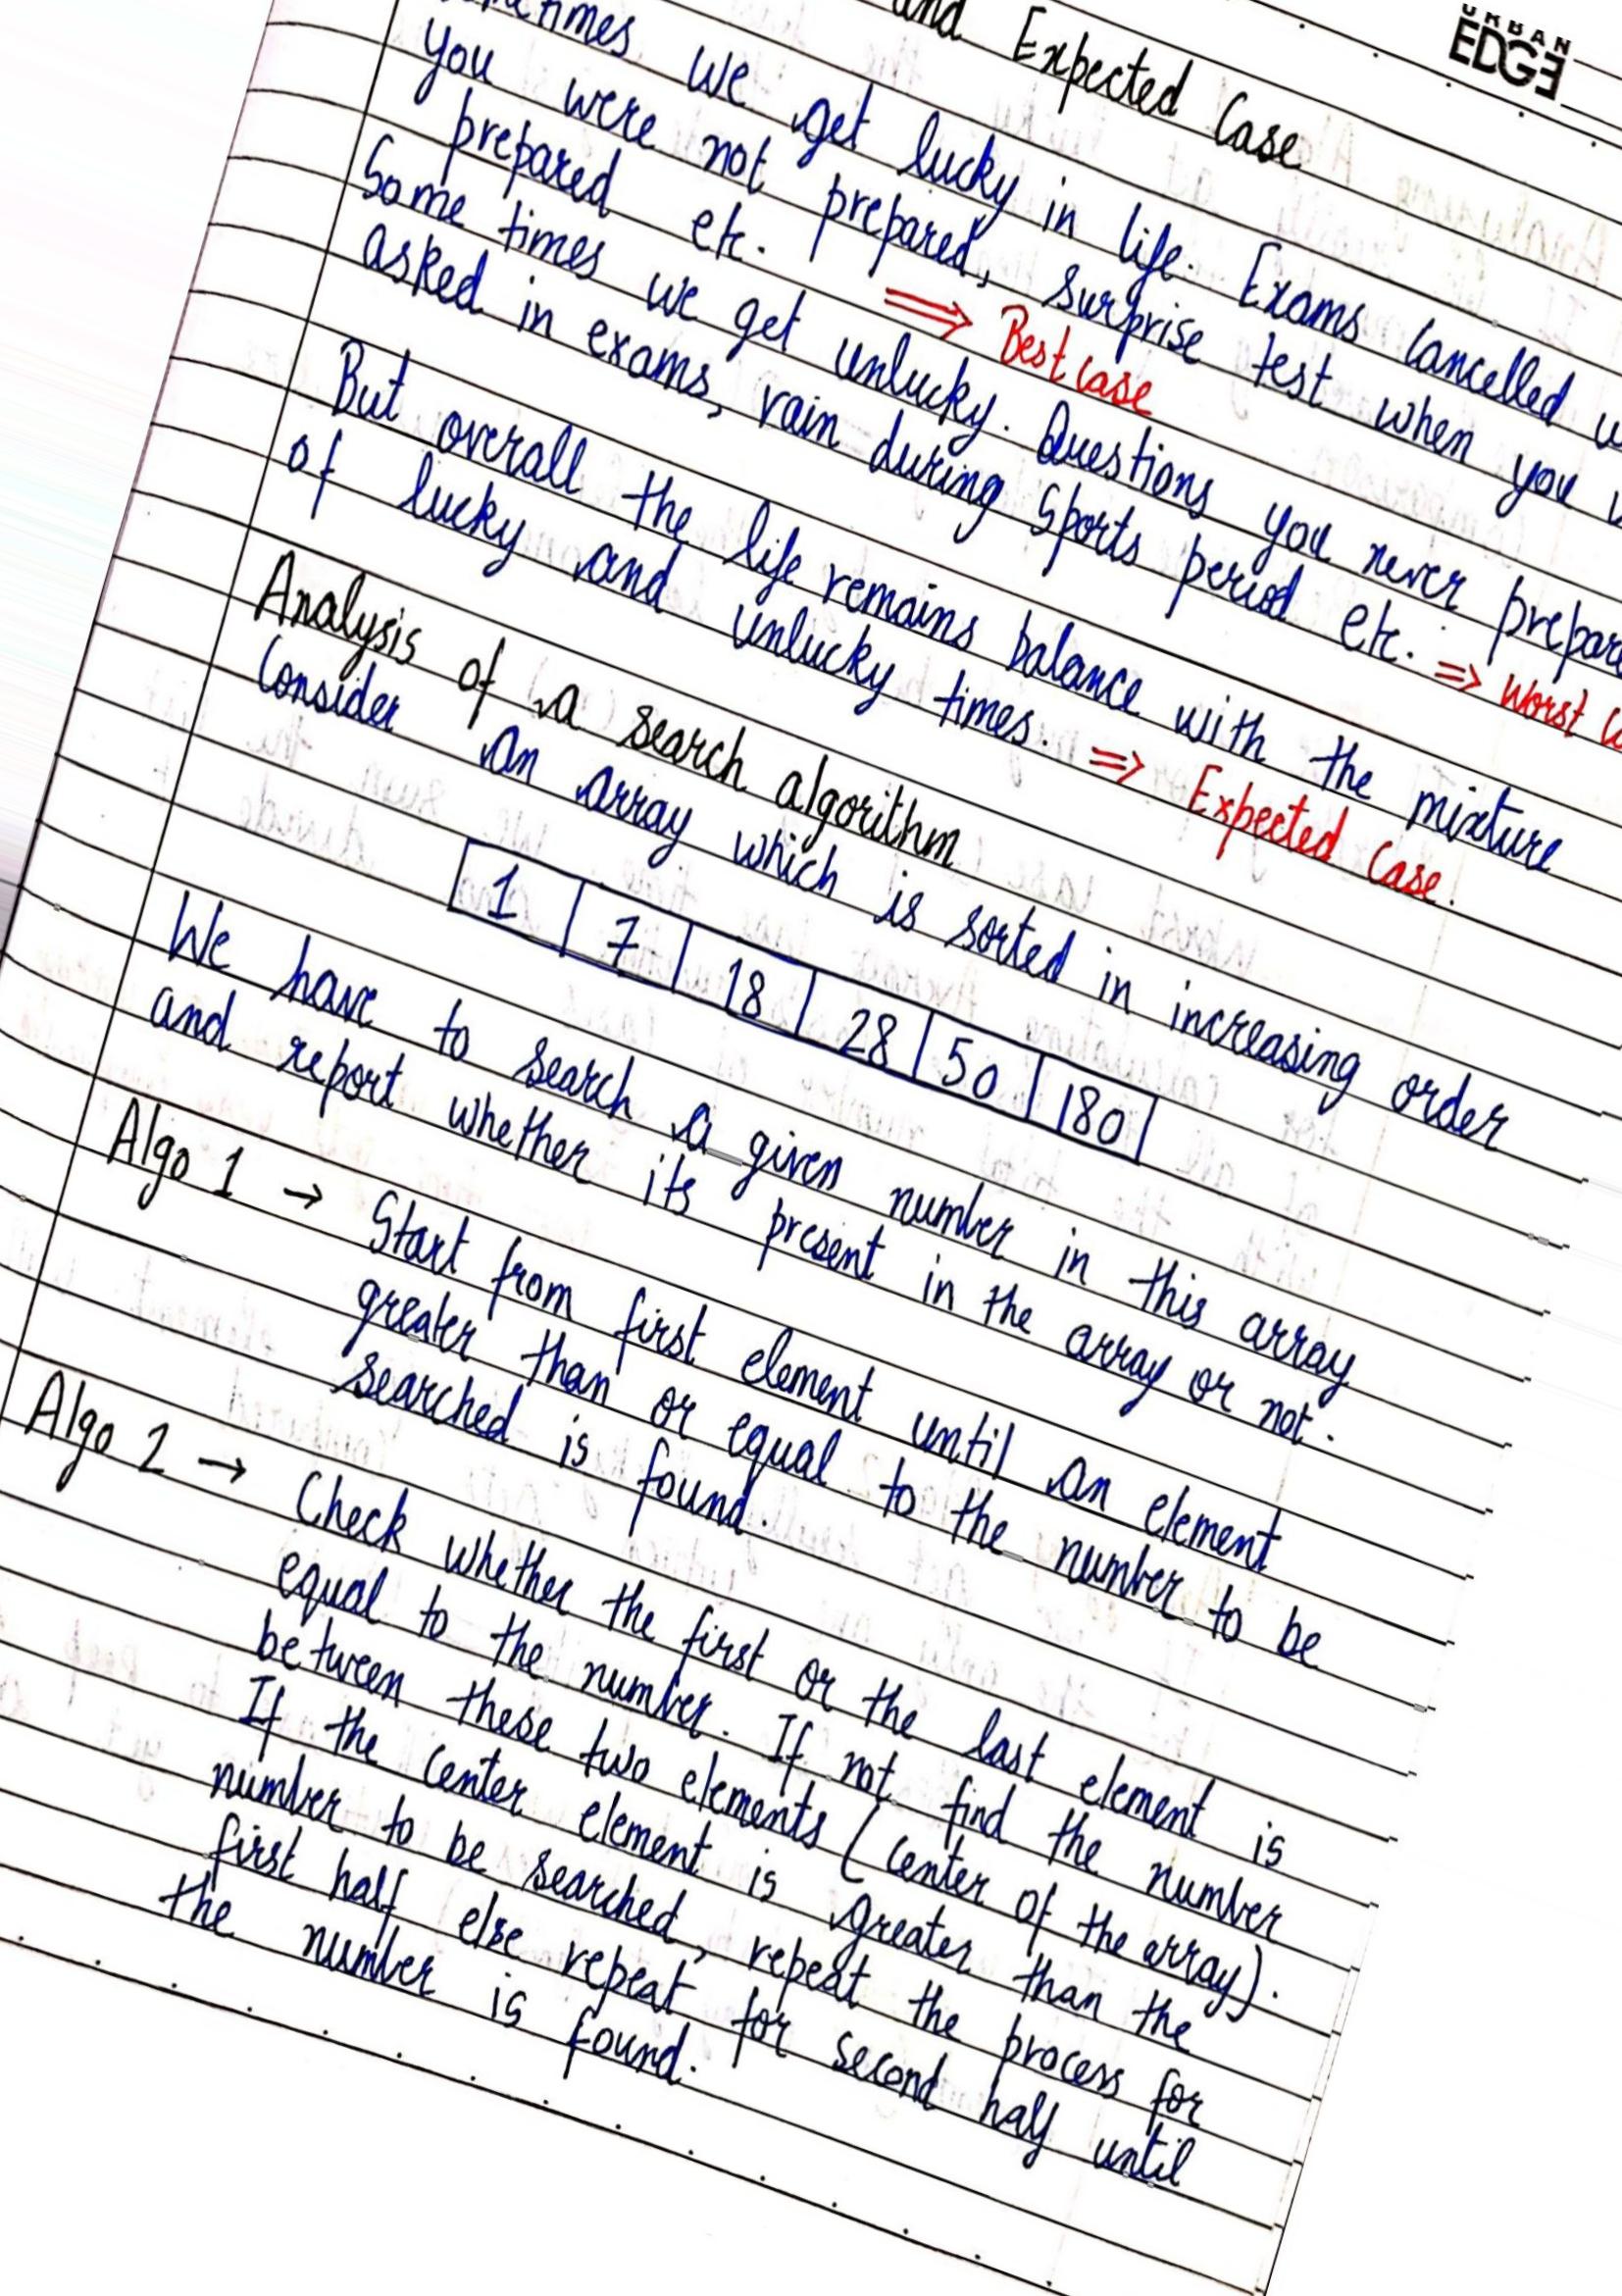 and Expected Case
URBAN
EDGE
we get lucky in life. Exams cancelled
you were not prepared, surprise test when you
prepared etc. ⇒ Best case
Some times we get unlucky. Questions you never
asked in exams, rain during Sports period etc. ⇒ Worst
But overall the life remains balance with the mixture
of lucky and unlucky times. ⇒ Expected Case.
Analysis of a search algorithm
Consider an array which is sorted in increasing order
1 7 18 28 50 180
We have to search a given number in this array
and report whether its present in the array or not.
Algo 1 → Start from first element until an element
greater than or equal to the number to be
searched is found.
Algo 2 → Check whether the first or the last element is
equal to the number. If not find the number
between these two elements (center of the array).
If the center element is greater than the
number to be searched, repeat the process for
first half else repeat for second half until
the number is found.